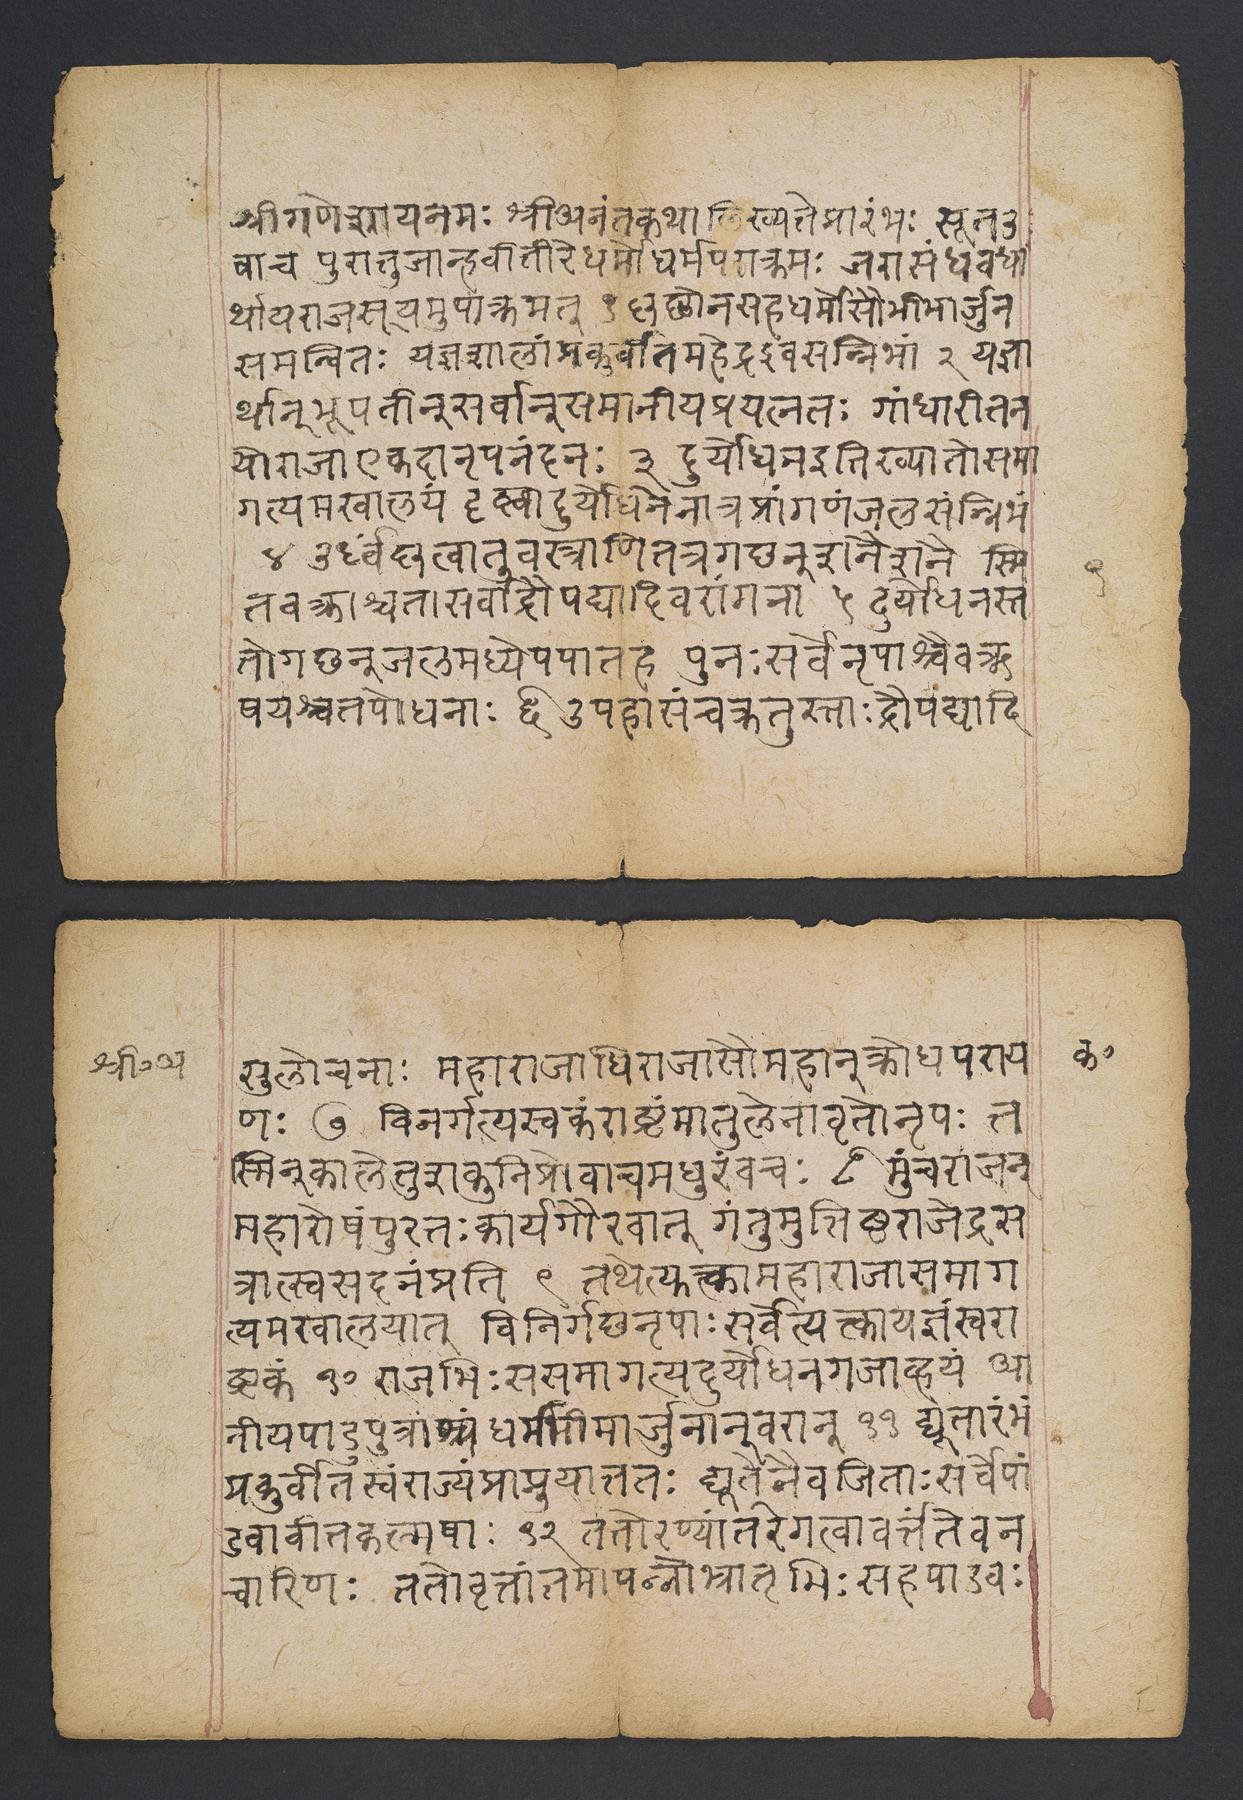 श्रीगणेशायनमः श्रीअनंतकथा लिख्यतेप्रारंभः सूतउ
वाच पुरातुजान्हवीतीरेधर्मोधर्मपराक्रमः जरासंधवधा
र्थायराजसूयमुपाक्रमत् १
समन्वितः यज्ञशालांप्रकुर्वीतमहेद्रइवसन्निभां २ यज्ञा
र्थान्भूपतीन्सर्वान्समानीयप्रयत्नतः गांधारीतन
योराजाएकदानृपनंदनः ३ दुर्योधनइतिख्यातोसमा
गत्यमखालयं दृष्ट्वादुर्योधनेनात्रप्रांगणंजलसंन्निभं
४ उर्ध्वंधृत्वातुवस्त्राणितत्रगछन्शनैशनै स्मि
तवक्त्राश्चतासर्वाद्रौपद्यादिवरांगना ५ दुर्योधनस्त
तोगछन्जलमध्येपपातह पुनःसर्वेनृपाश्चैवऋ
षयश्चतपोधनाः ६ उपहासंचक्रतुस्ताःद्रौपद्यादि
१
श्री॰अ
क॰
सुलोचनाः महाराजाधिराजासौमहान्क्रोधपराय
णः ७ विनर्गत्यस्वकंराष्ट्रंमातुलेनावृतोनृपः त
स्मिन्कालेतुशकुनिप्रोवाचमधुरंवचः ८ मुंचराजन्
महारोषंपुरतःकार्यगौरवात् गंतुमुत्तिष्ठराजेद्रस
त्रात्स्वसदनंप्रति ९ तथेत्युक्त्कामहाराजासमाग
त्यमखालयात् विनिर्गछनृपाःसर्वेत्यक्त्कायज्ञंस्वरा
ष्ट्रकं १० राजभिःससमागत्यदुर्योधनगजाव्हयं आ
नीयपाडुपुत्राश्च धर्मभीमार्जुनान्वरान् ११ द्यूतारंभं
प्रकुर्वीतस्वंराज्यंप्राप्नुयात्ततः द्यूतेनैवजिताःसर्वेपां
डवावीतकल्मषाः १२ ततोरण्यांतरेगत्वावर्त्ततेवन
चारिणः ततोवृत्तांतमापन्नौभ्रातृभिःसहपाडवः